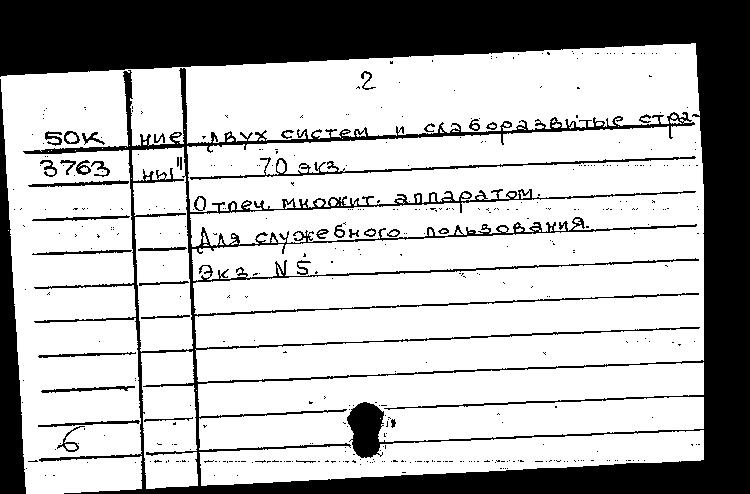 2
50К ние двух систем и слаборазвитые стра-
3763 ны" 70 экз.
Отпеч. множит. аппаратом.
Для служебного пользования.
Экз. N 5.
6